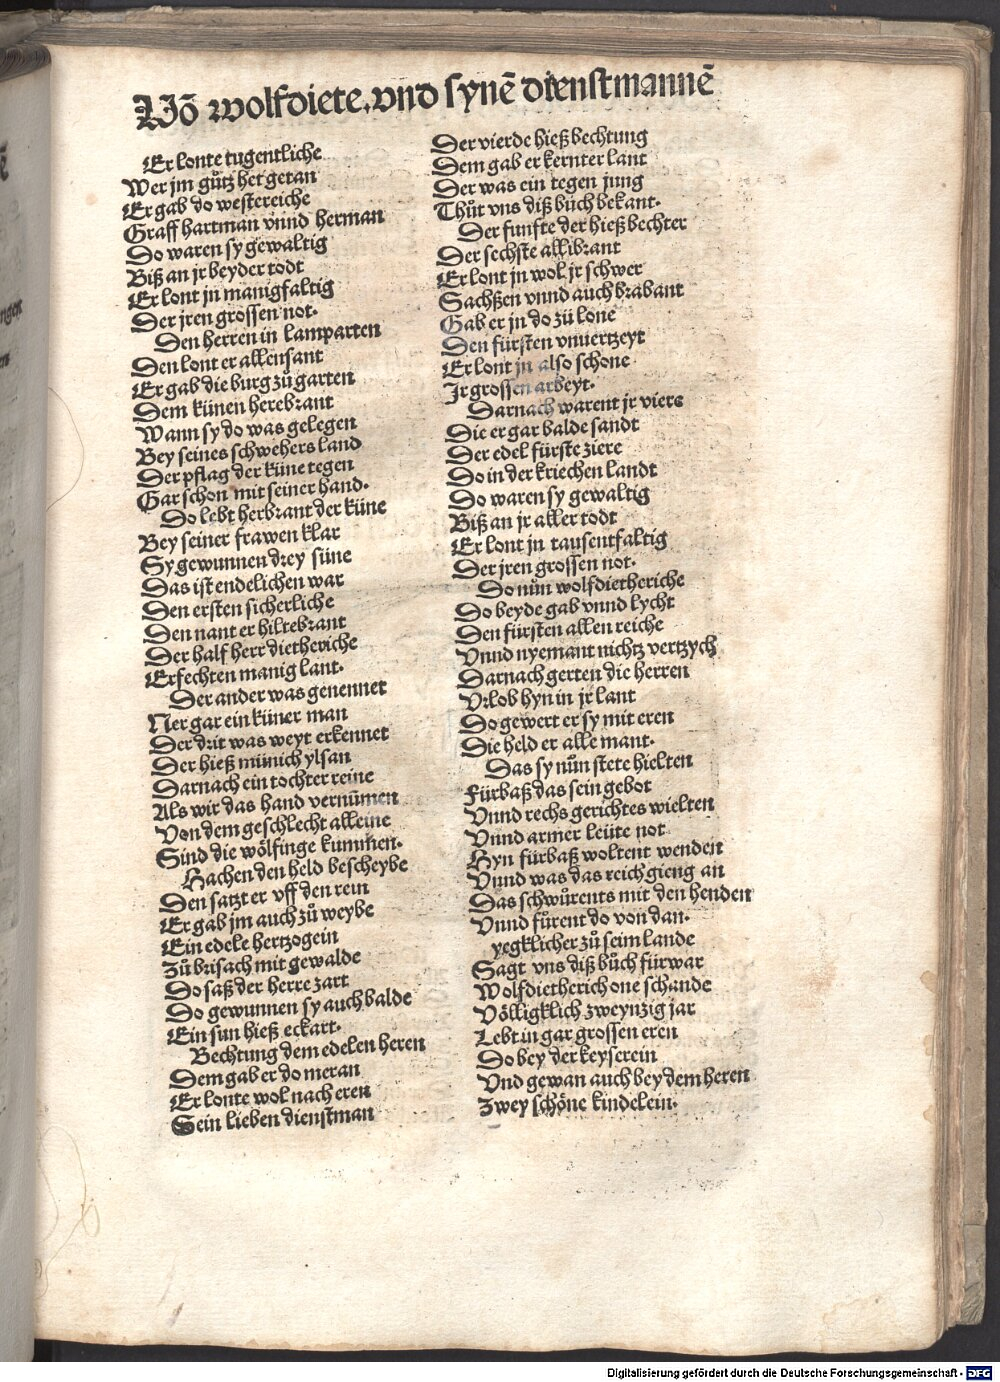 Võ wolfdiete. vnd synē dienstmannē
Er lonte tugentliche
Wer jm gůtz het getan
Er gab do westereiche
Graff hartman vnnd herman
Do waren sy gewaltig
Biß an jr beyder todt
Er lont jn manigfaltig
Der jren grossen not.
Den herren in lamparten
Den lont er allensant
Er gab die burg zů garten
Dem künen herebrant
Wann sy do was gelegen
Bey seines schwehers land
Der pflag der küne tegen
Gar schon mit seiner hand.
Do lebt herbrant der küne
Bey seiner frawen klar
Sy gewunnen drey süne
Das ist endelichen war
Den ersten sicherliche
Den nant er hiltebrant
Der half herr dietheriche
Erfechten manig lant.
Der ander was genennet
Ner gar ein küner man
Der drit was weyt erkennet
Der hieß münich ylsan
Darnach ein tochter reine
Als wir das hand vernūmen
Von dem geschlecht alleine
Sind die wölfinge kummen.
Hachen den held bescheybe
Den satzt er vff den rein
Er gab jm auch zů weybe
Ein edele hertzogein
Zů brisach mit gewalde
Do saß der herre zart
Do gewunnen sy auch balde
Ein sun hieß eckart.
Bechtung dem edelen heren
Dem gab er do meran
Er lonte wol nach eren
Sein lieben dienstman
Der vierde hieß bechtung
Dem gab er kernter lant
Der was ein tegen jung
Thůt vns diß bůch bekant.
Der funfte der hieß bechter
Der sechste allibrant
Er lont jn wol jr schwer
Sachßen vnnd auch brabant
Gab er jn do zů lone
Den fürsten vnuertzeyt
Er lont jn also schone
Jr grossen arbeyt.
Darnach warent jr viere
Die er gar balde sandt
Der edel fürste ziere
Do in der kriechen landt
Do waren sy gewaltig
Biß an jr aller todt
Er lont jn tausentfaltig
Der jren grossen not.
Do nůn wolfdietheriche
Do beyde gab vnnd lycht
Den fürsten allen reiche
Vnnd nyemant nichtz vertzych
Darnach gerten die herren
Vrlob hyn in jr lant
Do gewert er sy mit eren
Die held er alle mant.
Das sy nůn stete hielten
Fürbaß das sein gebot
Vnnd rechs gerichtes wielten
Vnnd armer leüte not
Hyn fürbaß woltent wenden
Vnnd was das reich gieng an
Das schwůrents mit den henden
Vnnd fůrent do von dan.
yegklicher zů seim lande
Sagt vns diß bůch fürwar
Wolfdietherich one schande
Völligklich zweynzig jar
Lebt in gar grossen eren
Do bey der keyserein
Vnd gewan auch bey dem heren
Zwey schöne kindelein.
Digitalisierung gefördert durch die Deutsche Forschungsgemeinschaft - DFG